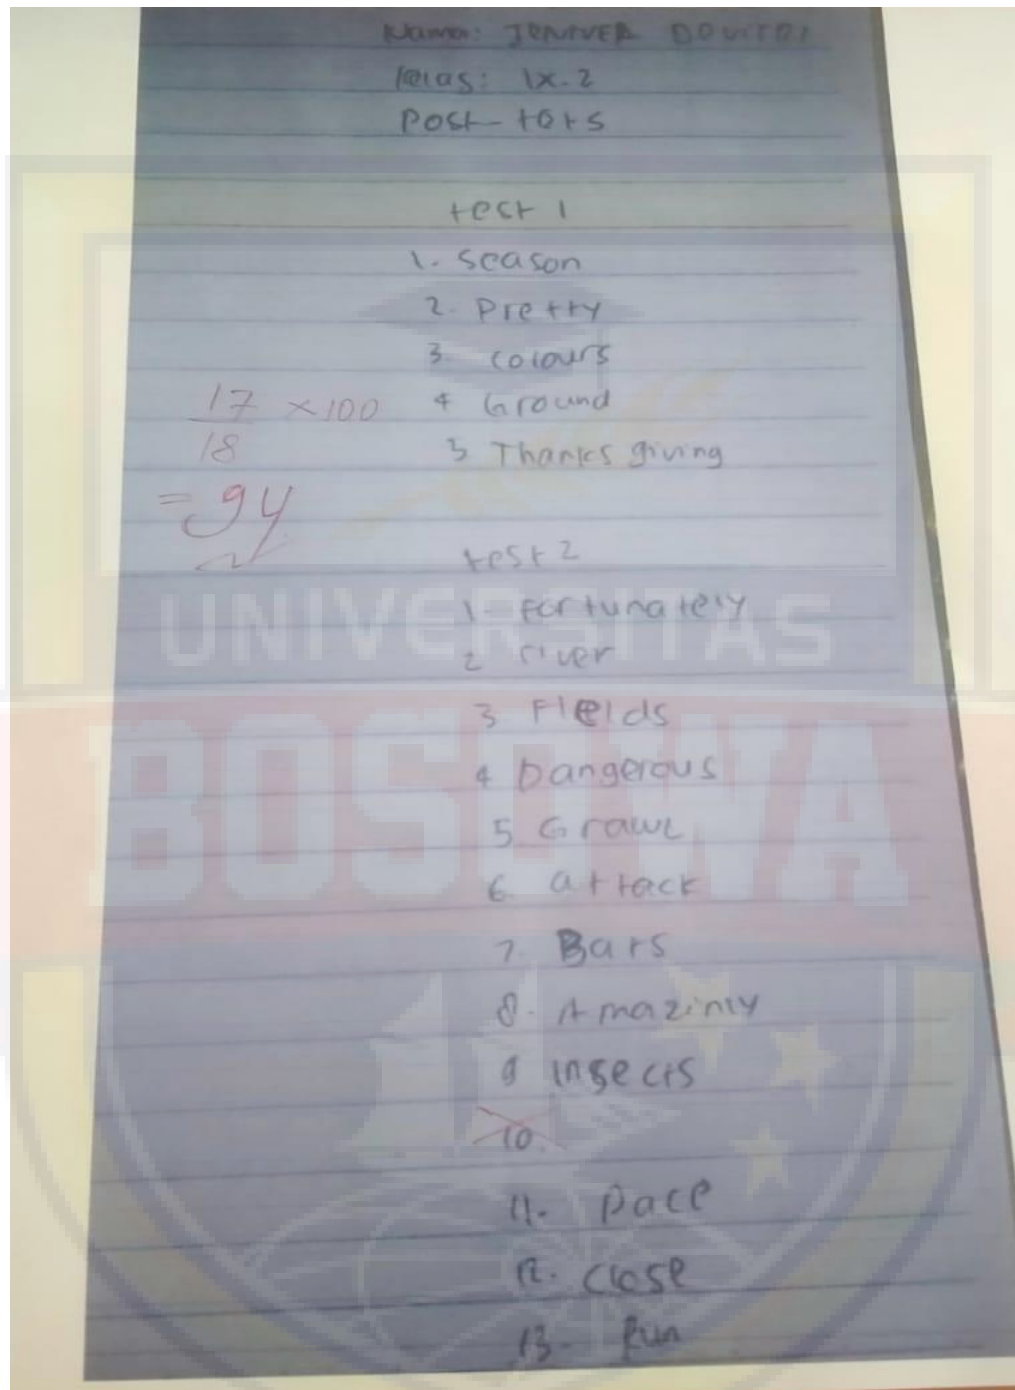 Nama: JENIVER
Kelas: IX.2
Post-tets
test 1
1. Season
2. Pretty
3. Colours
17/18 × 100
4 Ground
3 Thanks giving
= 94
test 2
1. Fortunately
2 river
3 Fields
4 Dangerous
5 Grawl
6. attack
7. Bars
8. Amazinly
9 insects
10.
11. Pace
12. Close
13. Run
UNIVERSITAS
BOSOWA